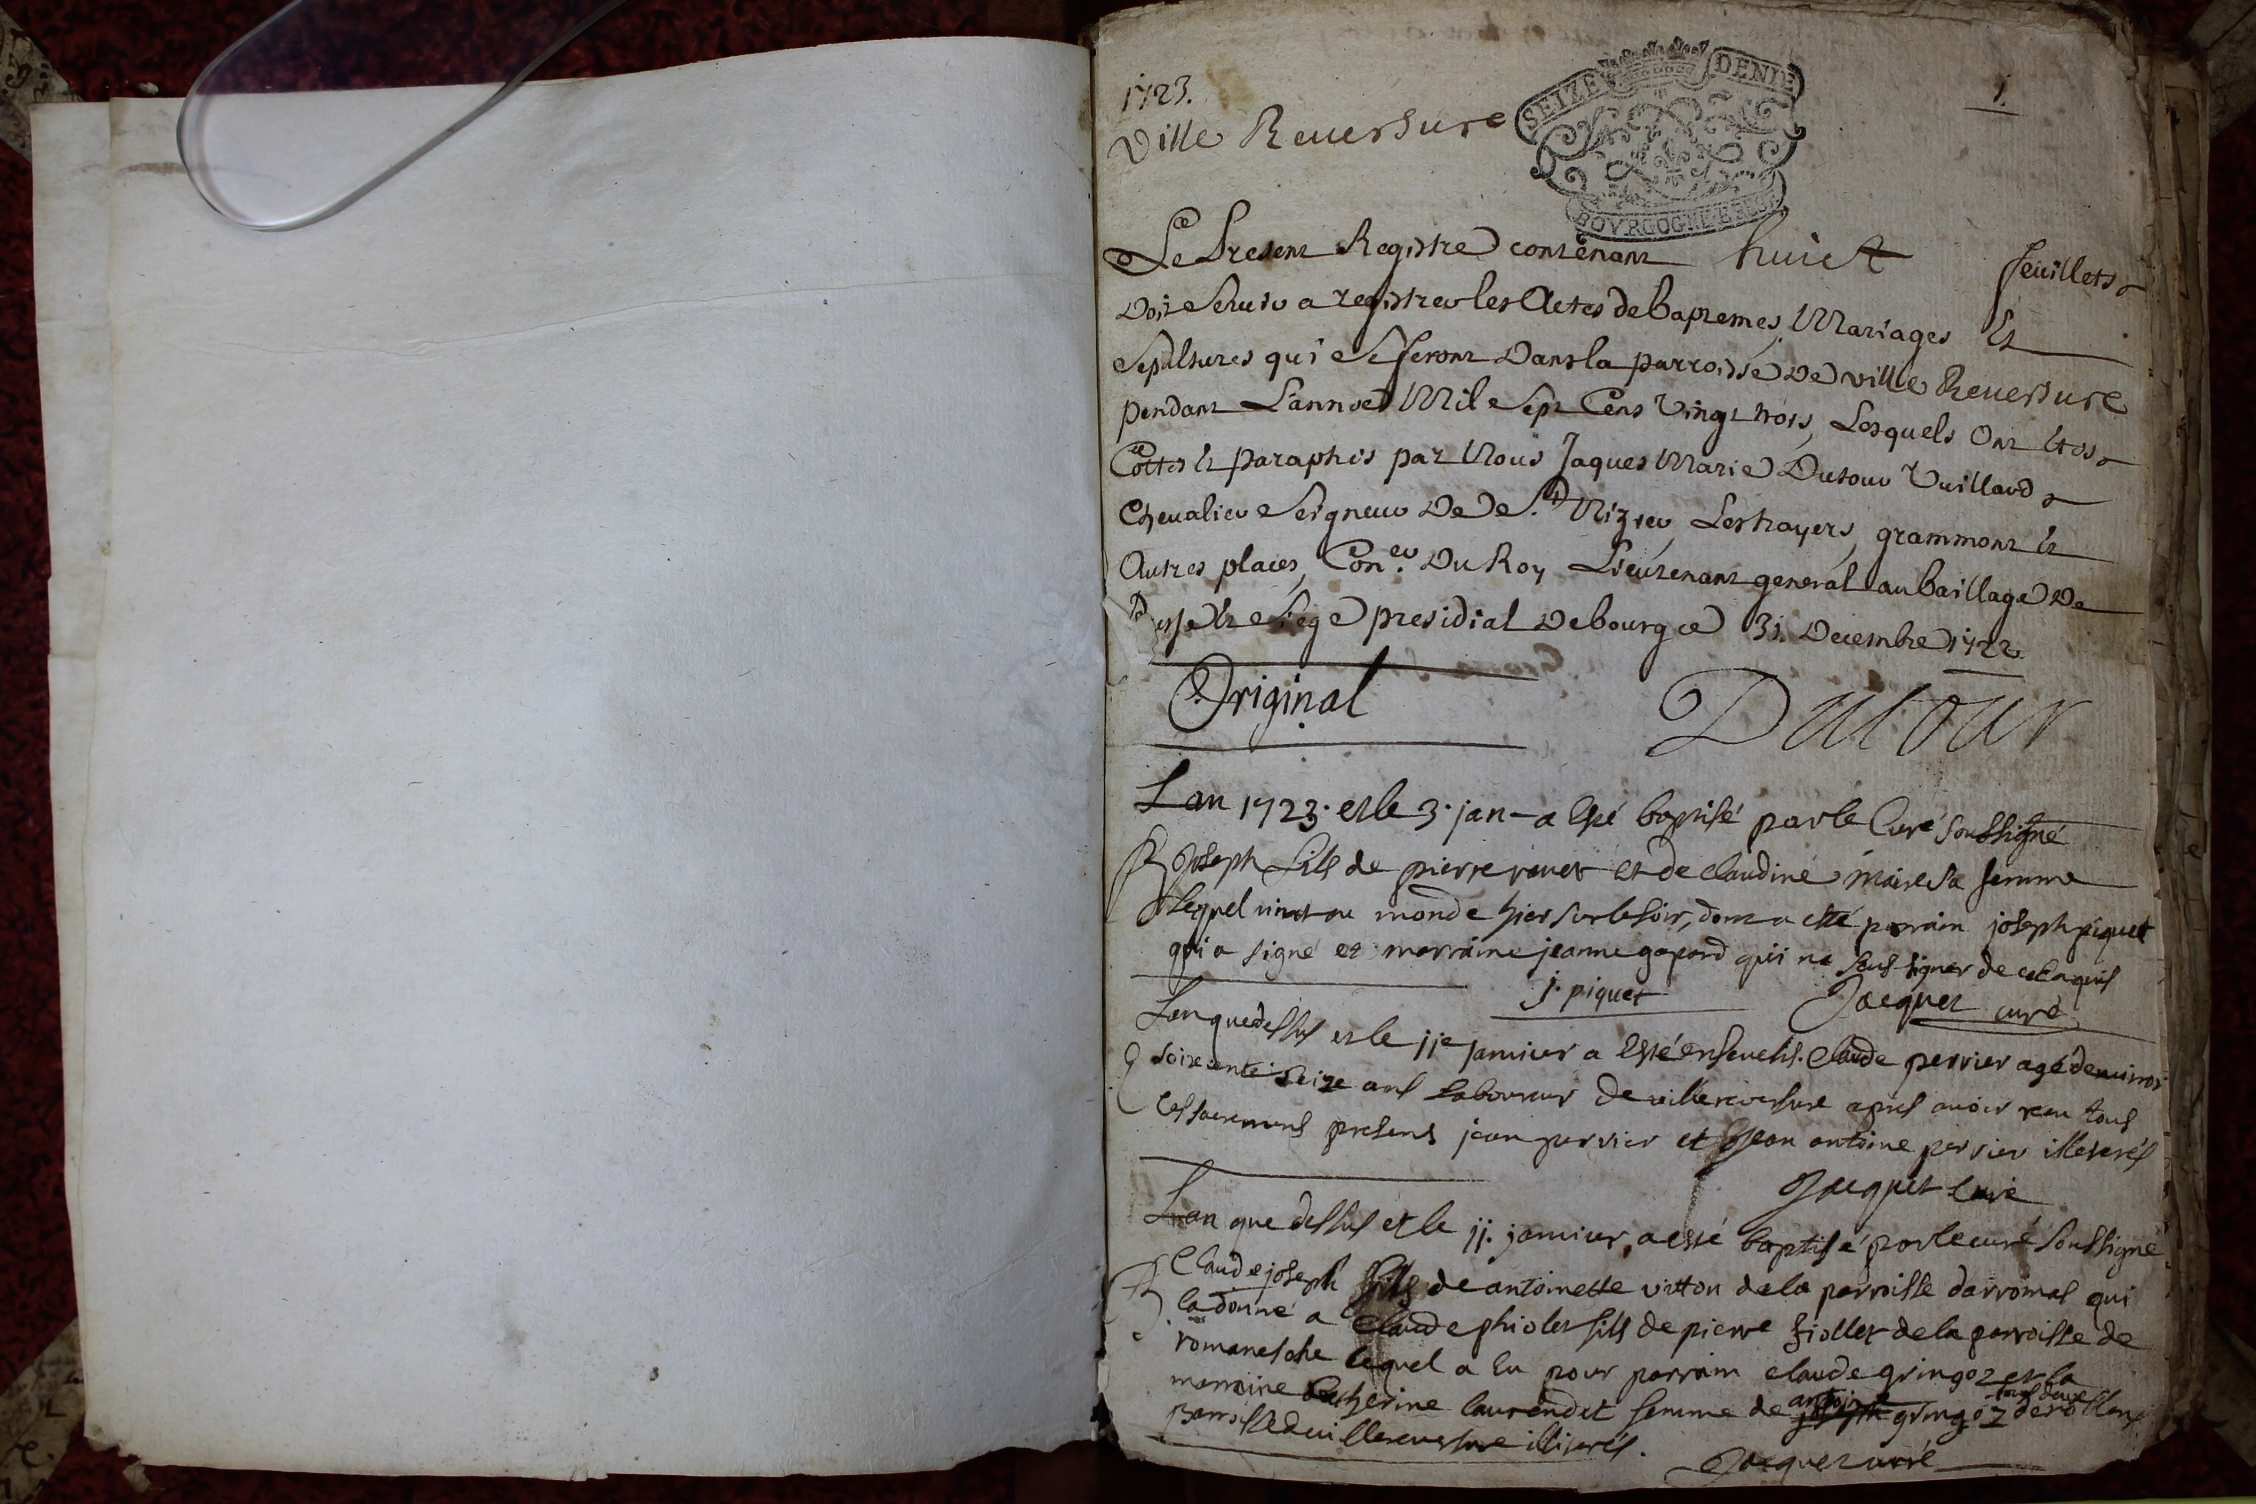 1723.
1.
Ville Reuersure
SEIZE DENIE
BOVRGOGNE
Le Present Registre contenant huict feuillets
Doit Seruir a registrer les Actes de Baptemes, Mariages Et
Sepultures qui Se feront Dans la parroisse De ville Reuersure
pendant L'année Mil Sept Cens Vingt trois, Lesquels Ont Etes
Cottes Et Paraphés par Nous Jaques Marie Dutour Vuillard
Cheualier Seigneur De St. Nizier, Leshayers, grammont Et
Autres places, Coner. Du Roy Lieutenant general au baillage De
Siege presidial De bourg ce 31. Decembre 1722.
Original
Dutour
Lan 1723. et le 3. jan a esté baptisé par le Curé soussigné
B Joseph fils de pierre et de claudine maire sa femme
lequel vint au monde hier sur le soir, dont a esté parrain joseph piquet
qui a signé et marraine jeanne gapard qui ne signer de
j. piquet Jacquet curé
Lan que dessus et le 11e januier a esté enseueli. Claude perrier agé denuiron
soixcente seize ans laboureur de villereuersure apres auoir receu tous
les sacremens presens jean perrier et jean antoine perrier illeterés
Jacquet curé
Lan que dessus et le 11. januier, a esté baptisé par le curé soussigné
B Claude joseph fils de antoinette vitton de la parroisse darromas qui
la donné a claude phiolet fils de pierre fiollet de la parroisse de
romanesche lequel a eu pour parrain claude gringoz et la
tous deux
marraine Catherine laurendet femme de antoine gringoz
parroisse de villereuersure illiterés.
Jacquet curé